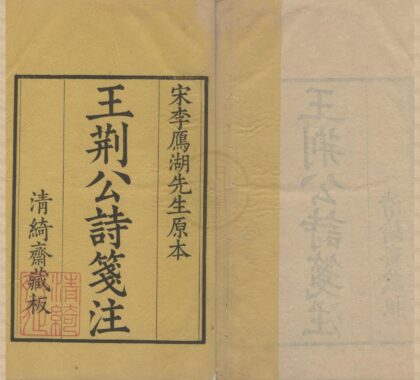 宋李鴈湖先生原本
王荆公詩箋注
清綺齋藏板